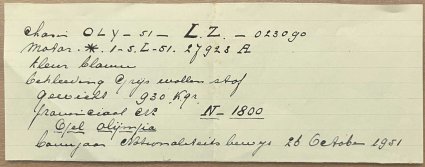 chasis OLY - 51 - L.Z. - 023090
Motor. *. 1-5.L-51. 27923 A
kleur blauw
bekleeding Grijs wollen stof
gewicht 930. Kgr.
provinciaal N - 1800
Opel Olympia
bouwjaar Nationaliteits bewijs 26 October 1951